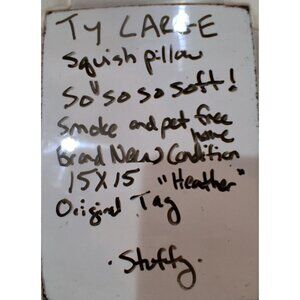 TY LARGE
Squish pillow
So" so so soft!
Smoke and pet free
home
Brand New Condition
15x15 "Heather"
Original Tag
· Stuffy ·